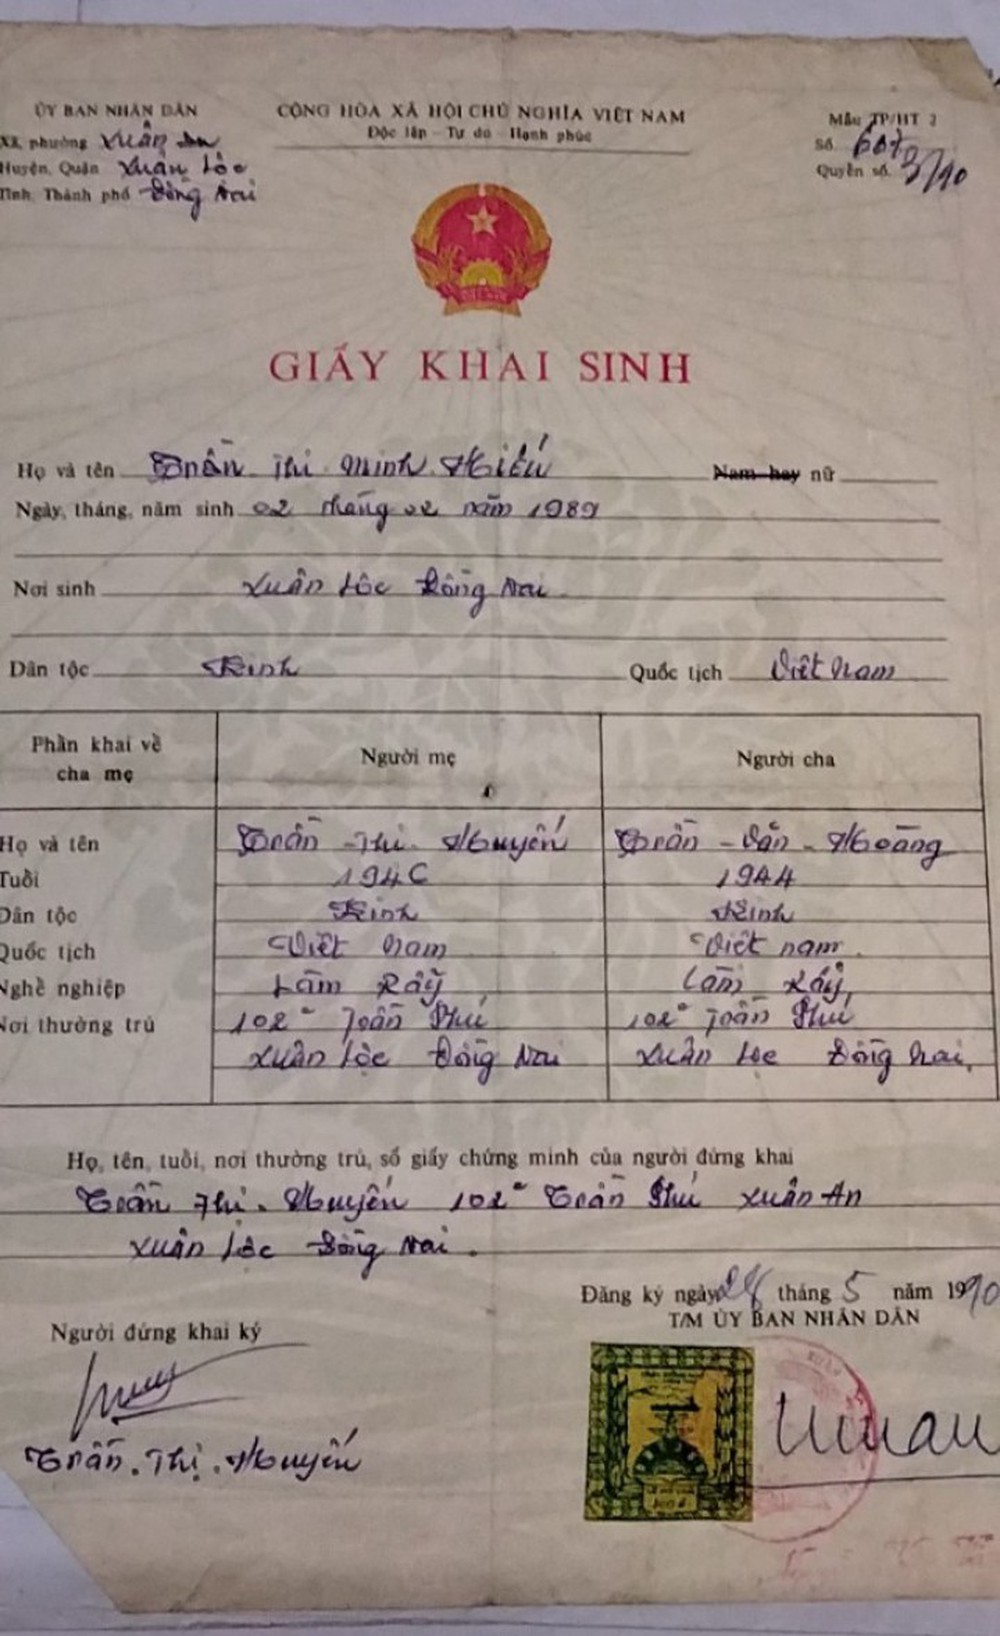 ỦY BAN NHÂN DÂN
Xã, phường Xuân An
Huyện, Quận Xuân Lộc
Tỉnh, Thành phố Đồng Nai
CỘNG HÒA XÃ HỘI CHỦ NGHĨA VIỆT NAM
Độc lập - Tự do - Hạnh phúc
Mẫu TP/HT 2
Số 607
Quyển số 3/90
GIẤY KHAI SINH
Họ và tên Trần Thị Minh Hiếu Nam hay nữ
Ngày, tháng, năm sinh 02 tháng 02 năm 1989
Nơi sinh Xuân Lộc Đồng Nai
Dân tộc Kinh Quốc tịch Việt Nam
Phần khai về cha mẹ Người mẹ Người cha
Họ và tên Trần - Thị - Huyến Trần - Văn - Hoàng
Tuổi 1946 1944
Dân tộc Kinh Kinh
Quốc tịch Việt Nam Việt nam
Nghề nghiệp Làm Rẫy Làm Rẫy
Nơi thường trú 102 Trần Phú 102 Trần Phú
Xuân Lộc Đồng Nai Xuân Lộc Đồng Nai
Họ, tên, tuổi, nơi thường trú, số giấy chứng minh của người đứng khai
Trần Thị Huyến 102 Trần Phú Xuân An
Xuân Lộc Đồng Nai.
Đăng ký ngày tháng 5 năm 1990
T/M ỦY BAN NHÂN DÂN
Người đứng khai ký
Trần. Thị. Huyến